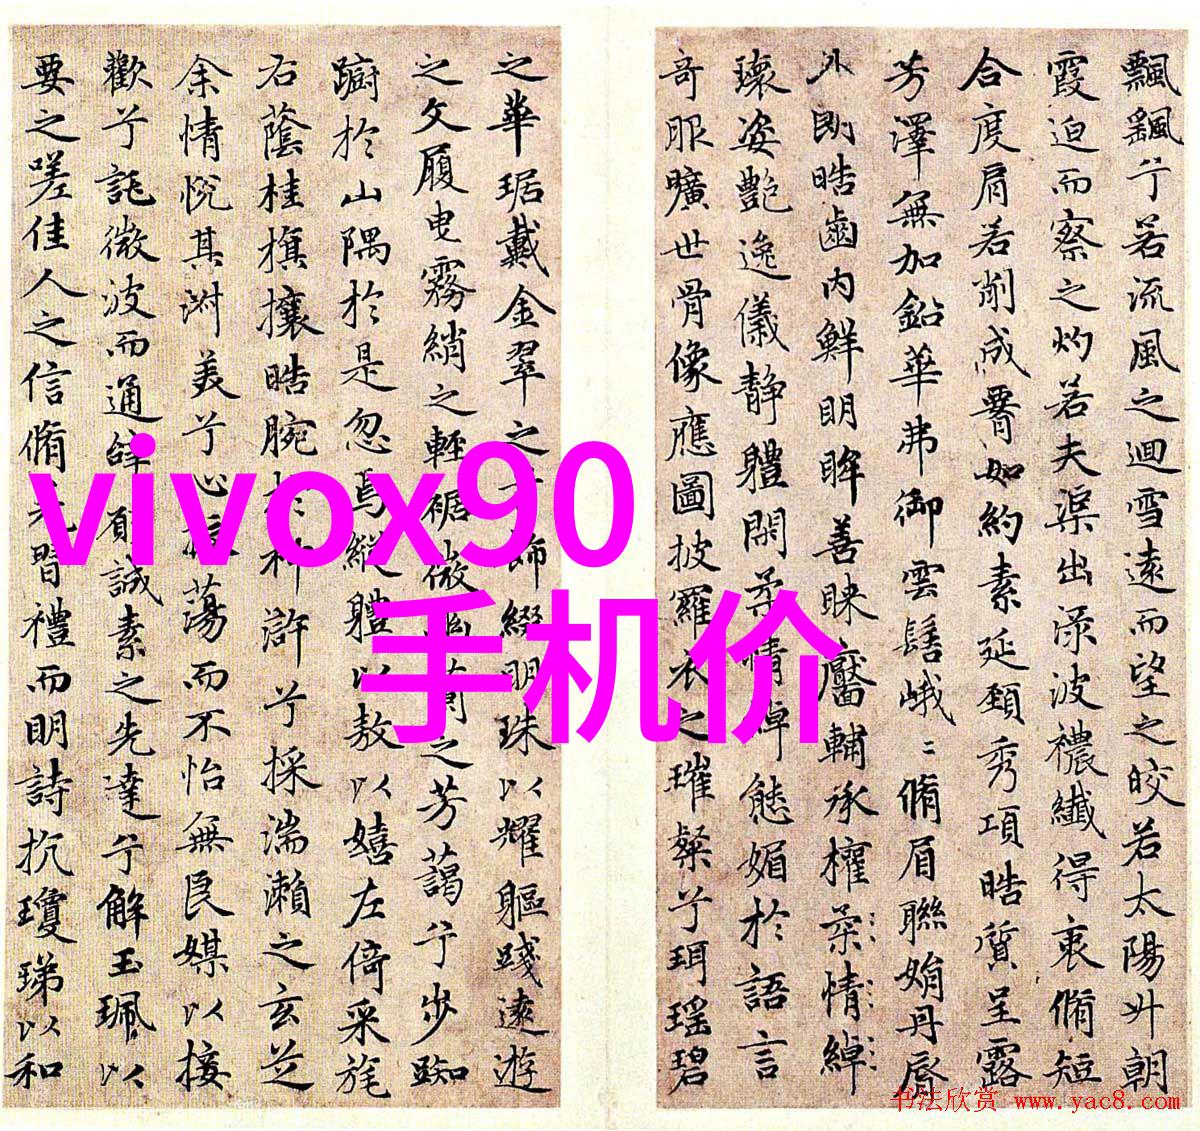 飄飖兮若流風之迴雪遠而望之皎若太陽升朝
霞迫而察之灼若夫渠出淥波襛纖得衷脩短
合度肩若削成如約素延頚秀項皓質呈露
芳澤無加鉛華弗御雲髻峨〻脩眉聯娟丹脣
外朗皓齒內鮮明眸善睞靨輔承權柔情綽
瓌姿艷逸儀靜體閑柔情綽態媚於語言
奇服曠世骨像應圖披羅衣之璀粲兮珥瑤碧
之華琚戴金翠之飾綴明珠以耀軀踐遠遊
之文履曳霧綃之輕裾微幽蘭之芳藹兮步踟
蹰於山隅於是忽焉縱體以敖以嬉左倚采旄
右蔭桂旗攘皓腕於神滸兮採湍瀨之玄芝
余情悅其淑美兮心振蕩而不怡無良媒以接
歡兮託微波而通辞願誠素之先達兮解玉珮以
要之嗟佳人之信脩羌習禮而明詩抗瓊珶以和
vivox90
手机价
书法欣赏 www.yac8.com